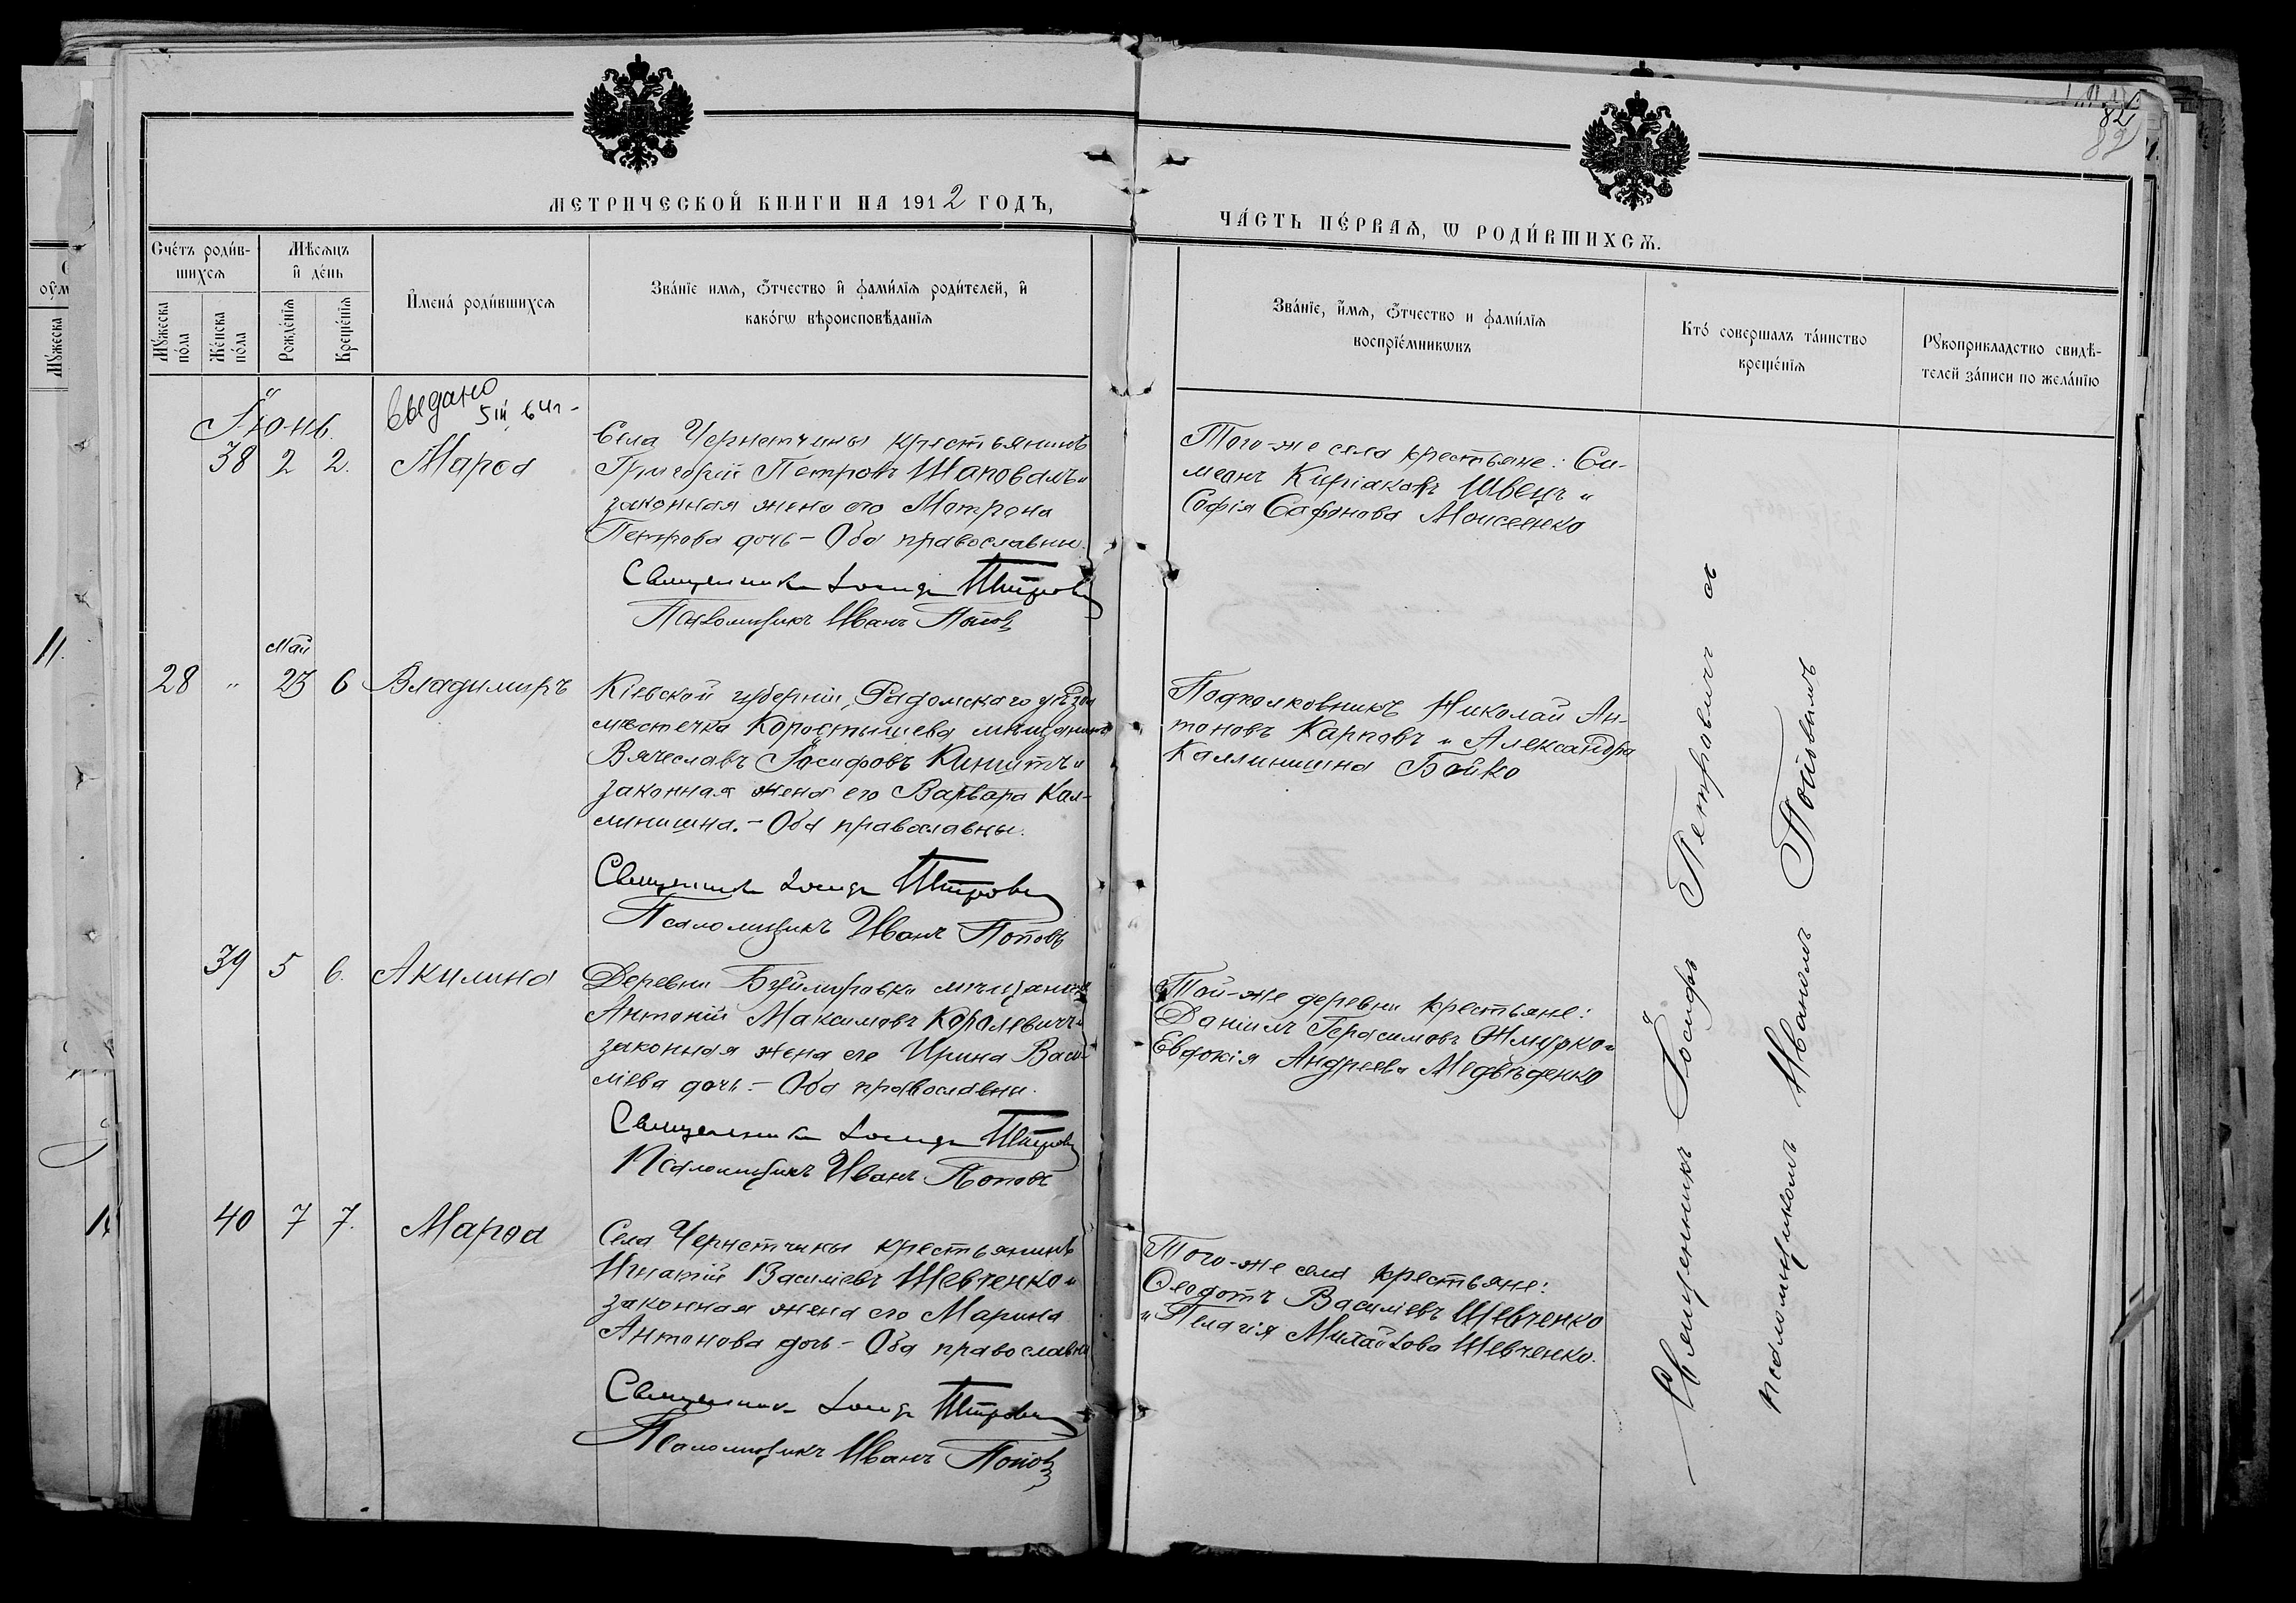 82
82
МЕТРИЧЕСКОЙ КНИГИ НА 1912 ГОДЪ,
ЧА́СТЬ ПЕ́РВАѦ, Ѡ РОДИ́ВШИХСѦ.
Счéтъ роди́в-
шихсѧ
Мѣ́сѧцъ
и҆ дéнь
Мꙋ́жеска
по́ла
Же́нска
по́ла
Рожде́нїѧ
Креще́нїѧ
И҆мена̀ роди́вшихсѧ
Зва́нїе имѧ, ѻ҆тчество и҆ фами́лїѧ роди́телей, и҆
како́гѡ вѣроисповѣ́данїѧ
Зва́нїе, и҆́мѧ, ѻ҆тчество и фами́лїѧ
воспрїе́мникѡвъ
Кто́ совершалъ та́инство
креще́нїѧ
Рꙋкоприкладство свидѣ́-
телей за́писи по жела́нїю
Мꙋ́жеска
выдано
5 III 64 г-
Іюнь.
38 2 2. Марѳа
Села Чернетчины крестьянинъ
Григорій Петровъ Шаповалъ и
законная жена его Матрона
Петрова дочь - Оба православны.
Священникъ Іосифъ Петровичъ
Псаломщикъ Иванъ Поповъ
Того-же села крестьяне: Си-
меонъ Киріаковъ Швецъ и
Софія Сафонова Моисеенко
11.
Май
28 " 23 6 Владимиръ
Кіевской губерніи, Радомскаго уѣзда
мѣстечка Коростышева мѣщанинъ
Вячеславъ Іосифовъ и
законная жена его Варвара Кал-
линишна. - Оба православны.
Священникъ Іосифъ Петровичъ
Псаломщикъ Иванъ Поповъ
Подполковникъ Николай Ан-
тоновъ Карповъ и Александра
Каллинишна Бойко
39 5 6. Акилина
Деревни Буймировки мѣщанинъ
Антоній Максимовъ Королевичъ и
законная жена его Ирина Васи-
ліева дочь. - Оба православны.
Священникъ Іосифъ Петровичъ
Псаломщикъ Иванъ Поповъ
Той-же деревни крестьяне:
Даніилъ Герасимовъ Жмурко и
Евдокія Андреева Медвѣденко
40 7 7. Марѳа
Села Чернетчины крестьянинъ
Игнатій Василіевъ Шевченко и
законная жена его Марина
Антонова дочь - Оба православны
Священникъ Іосифъ Петровичъ
Псаломщикъ Иванъ Поповъ
Того-же села крестьяне:
Ѳеодотъ Василіевъ Шевченко
и Пелагія Михайлова Шевченко.
Священникъ Іосифъ Петровичъ съ
псаломщикомъ Иваномъ Поповымъ